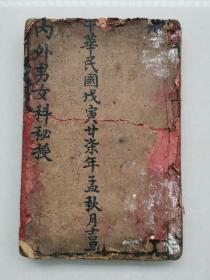 中華民國戊寅廿柒年孟秋月吉旦
內外男女科秘授